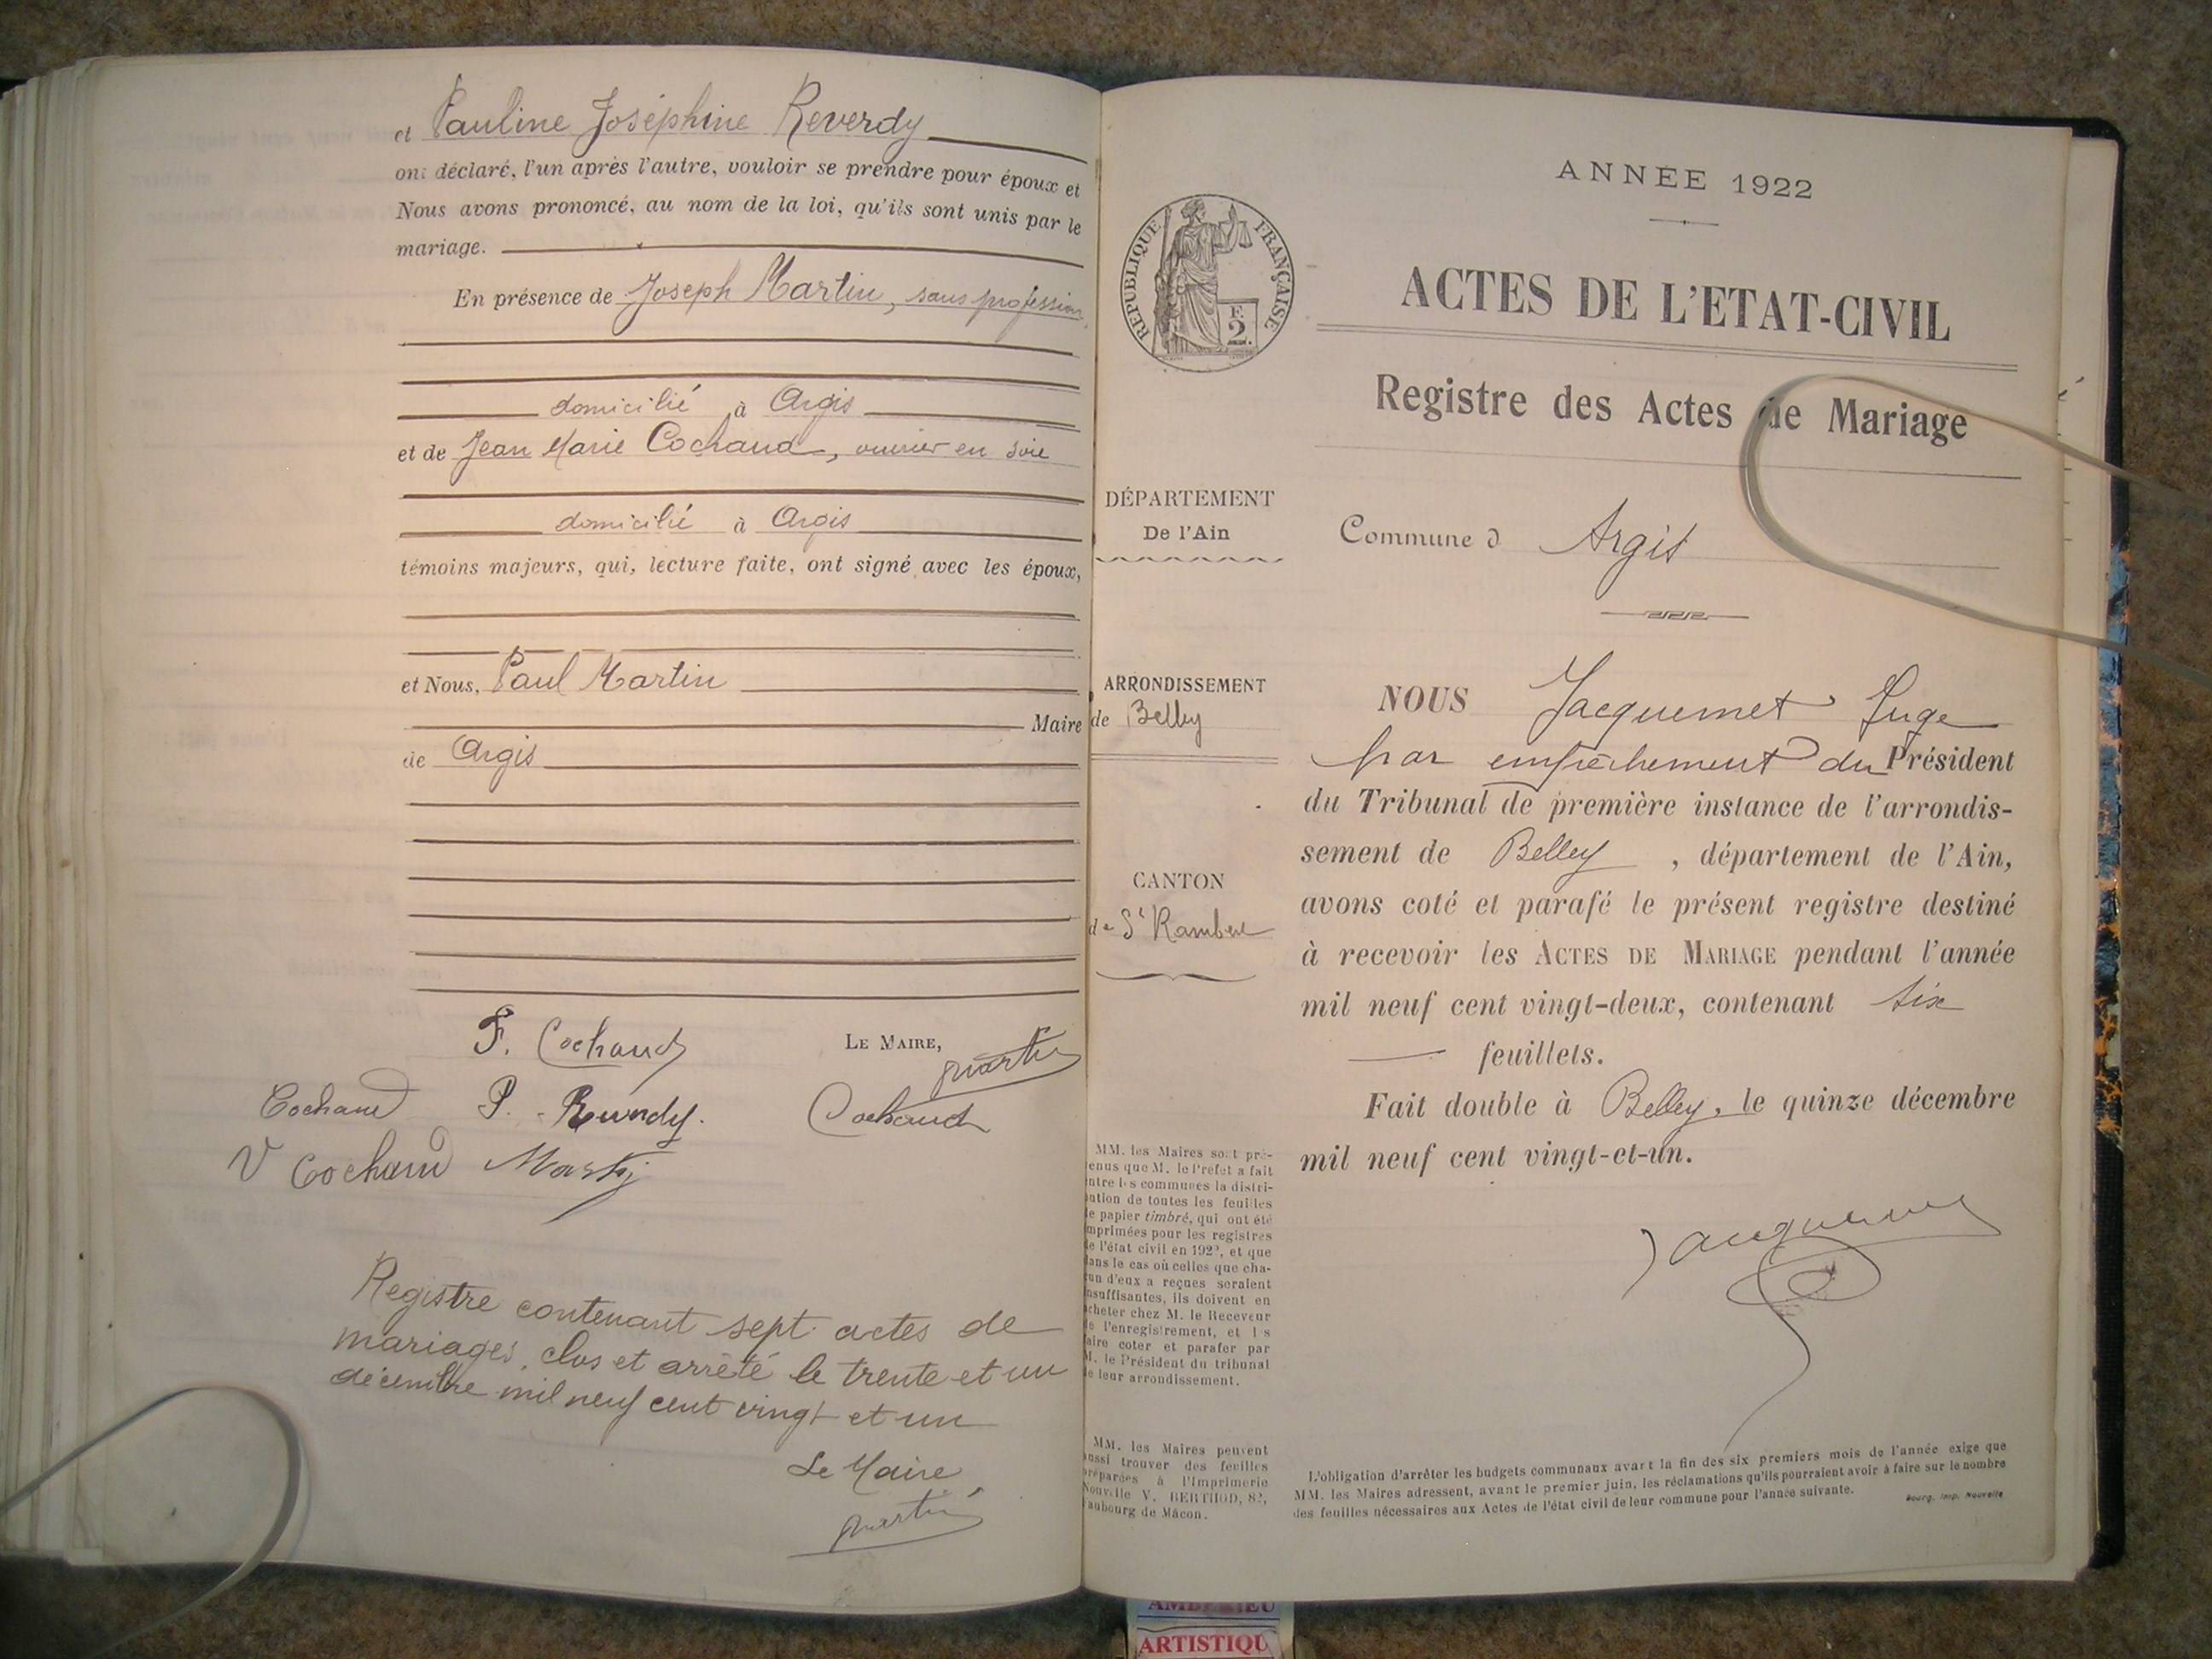 et Pauline Joséphine Reverdy
ont déclaré, l'un après l'autre, vouloir se prendre pour époux et
Nous avons prononcé, au nom de la loi, qu'ils sont unis par le
mariage.
En présence de Joseph Martin, sans profession,
domicilié à Argis
et de Jean Marie Cochaud, ouvrier en soie
domicilié à Argis
témoins majeurs, qui, lecture faite, ont signé avec les époux,
et Nous, Paul Martin
Maire
de Argis
F. Cochaud
LE MAIRE,
Martin
Cochaud P. Reverdy. Cochaud
V Cochaud Martin
Registre contenant sept actes de
mariages, clos et arrêté le trente et un
décembre mil neuf cent vingt et un
Le Maire
Martin
RÉPUBLIQUE FRANÇAISE
F.
2
DÉPARTEMENT
De l'Ain
ARRONDISSEMENT
de Belley
CANTON
de St Rambert
MM. les Maires sont pré-
enus que M. le Préfet a fait
ntre les communes la distri-
ution de toutes les feuilles
e papier timbré, qui ont été
mprimées pour les registres
e l'état civil en 192, et que
ans le cas où celles que cha-
un d'eux a reçues seraient
nsuffisantes, ils doivent en
cheter chez M. le Receveur
e l'enregistrement, et l s
aire coter et parafer par
M. le Président du tribunal
e leur arrondissement.
MM. les Maires peuvent
ussi trouver des feuilles
réparées à l'Imprimerie
Nouvelle V. BERTHOD, 82,
aubourg de Mâcon.
ANNÉE 1922
ACTES DE L'ETAT-CIVIL
Registre des Actes de Mariage
Commune d Argis
NOUS Jacquemet Juge
par empêchement du Président
du Tribunal de première instance de l'arrondis-
sement de Belley , département de l'Ain,
avons coté et parafé le présent registre destiné
à recevoir les ACTES DE MARIAGE pendant l'année
mil neuf cent vingt-deux, contenant six
feuillets.
Fait double à Belley, le quinze décembre
mil neuf cent vingt-et-un.
Jacquemet
L'obligation d'arrêter les budgets communaux avart la fin des six premiers mois de l'année exige que
MM. les Maires adressent, avant le premier juin, les réclamations qu'ils pourraient avoir à faire sur le nombre
des feuilles nécessaires aux Actes de l'état civil de leur commune pour l'année suivante.
Bourg, Imp. Nouvelle
ARTISTIQU